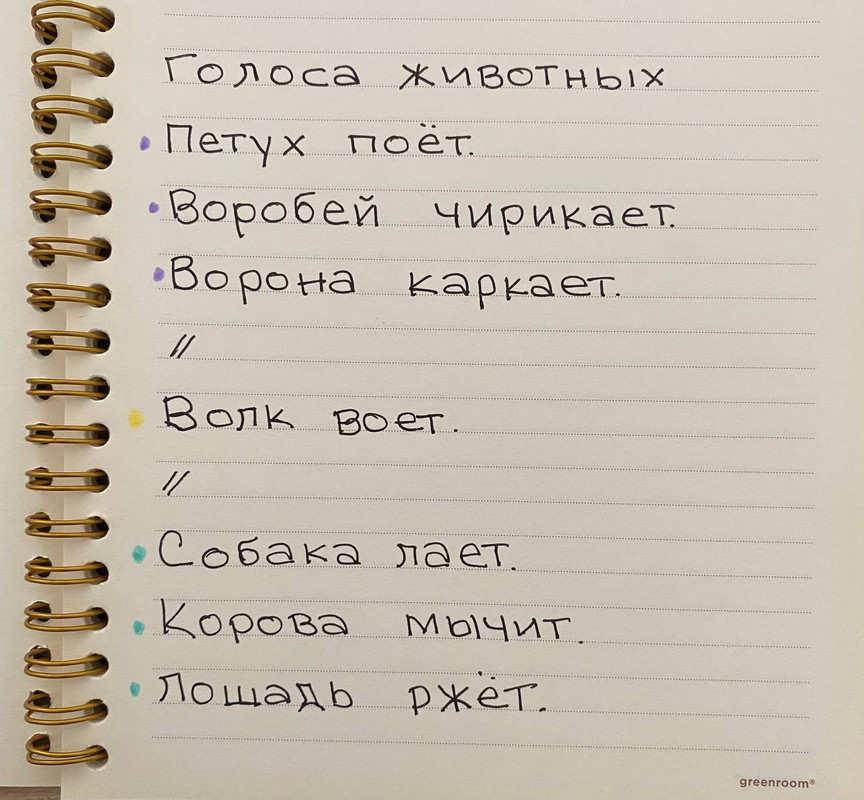 Голоса животных
Петух поёт.
Воробей чирикает.
Ворона каркает.
//
Волк воет.
//
Собака лает.
Корова мычит.
Лошадь ржёт.
greenroom®